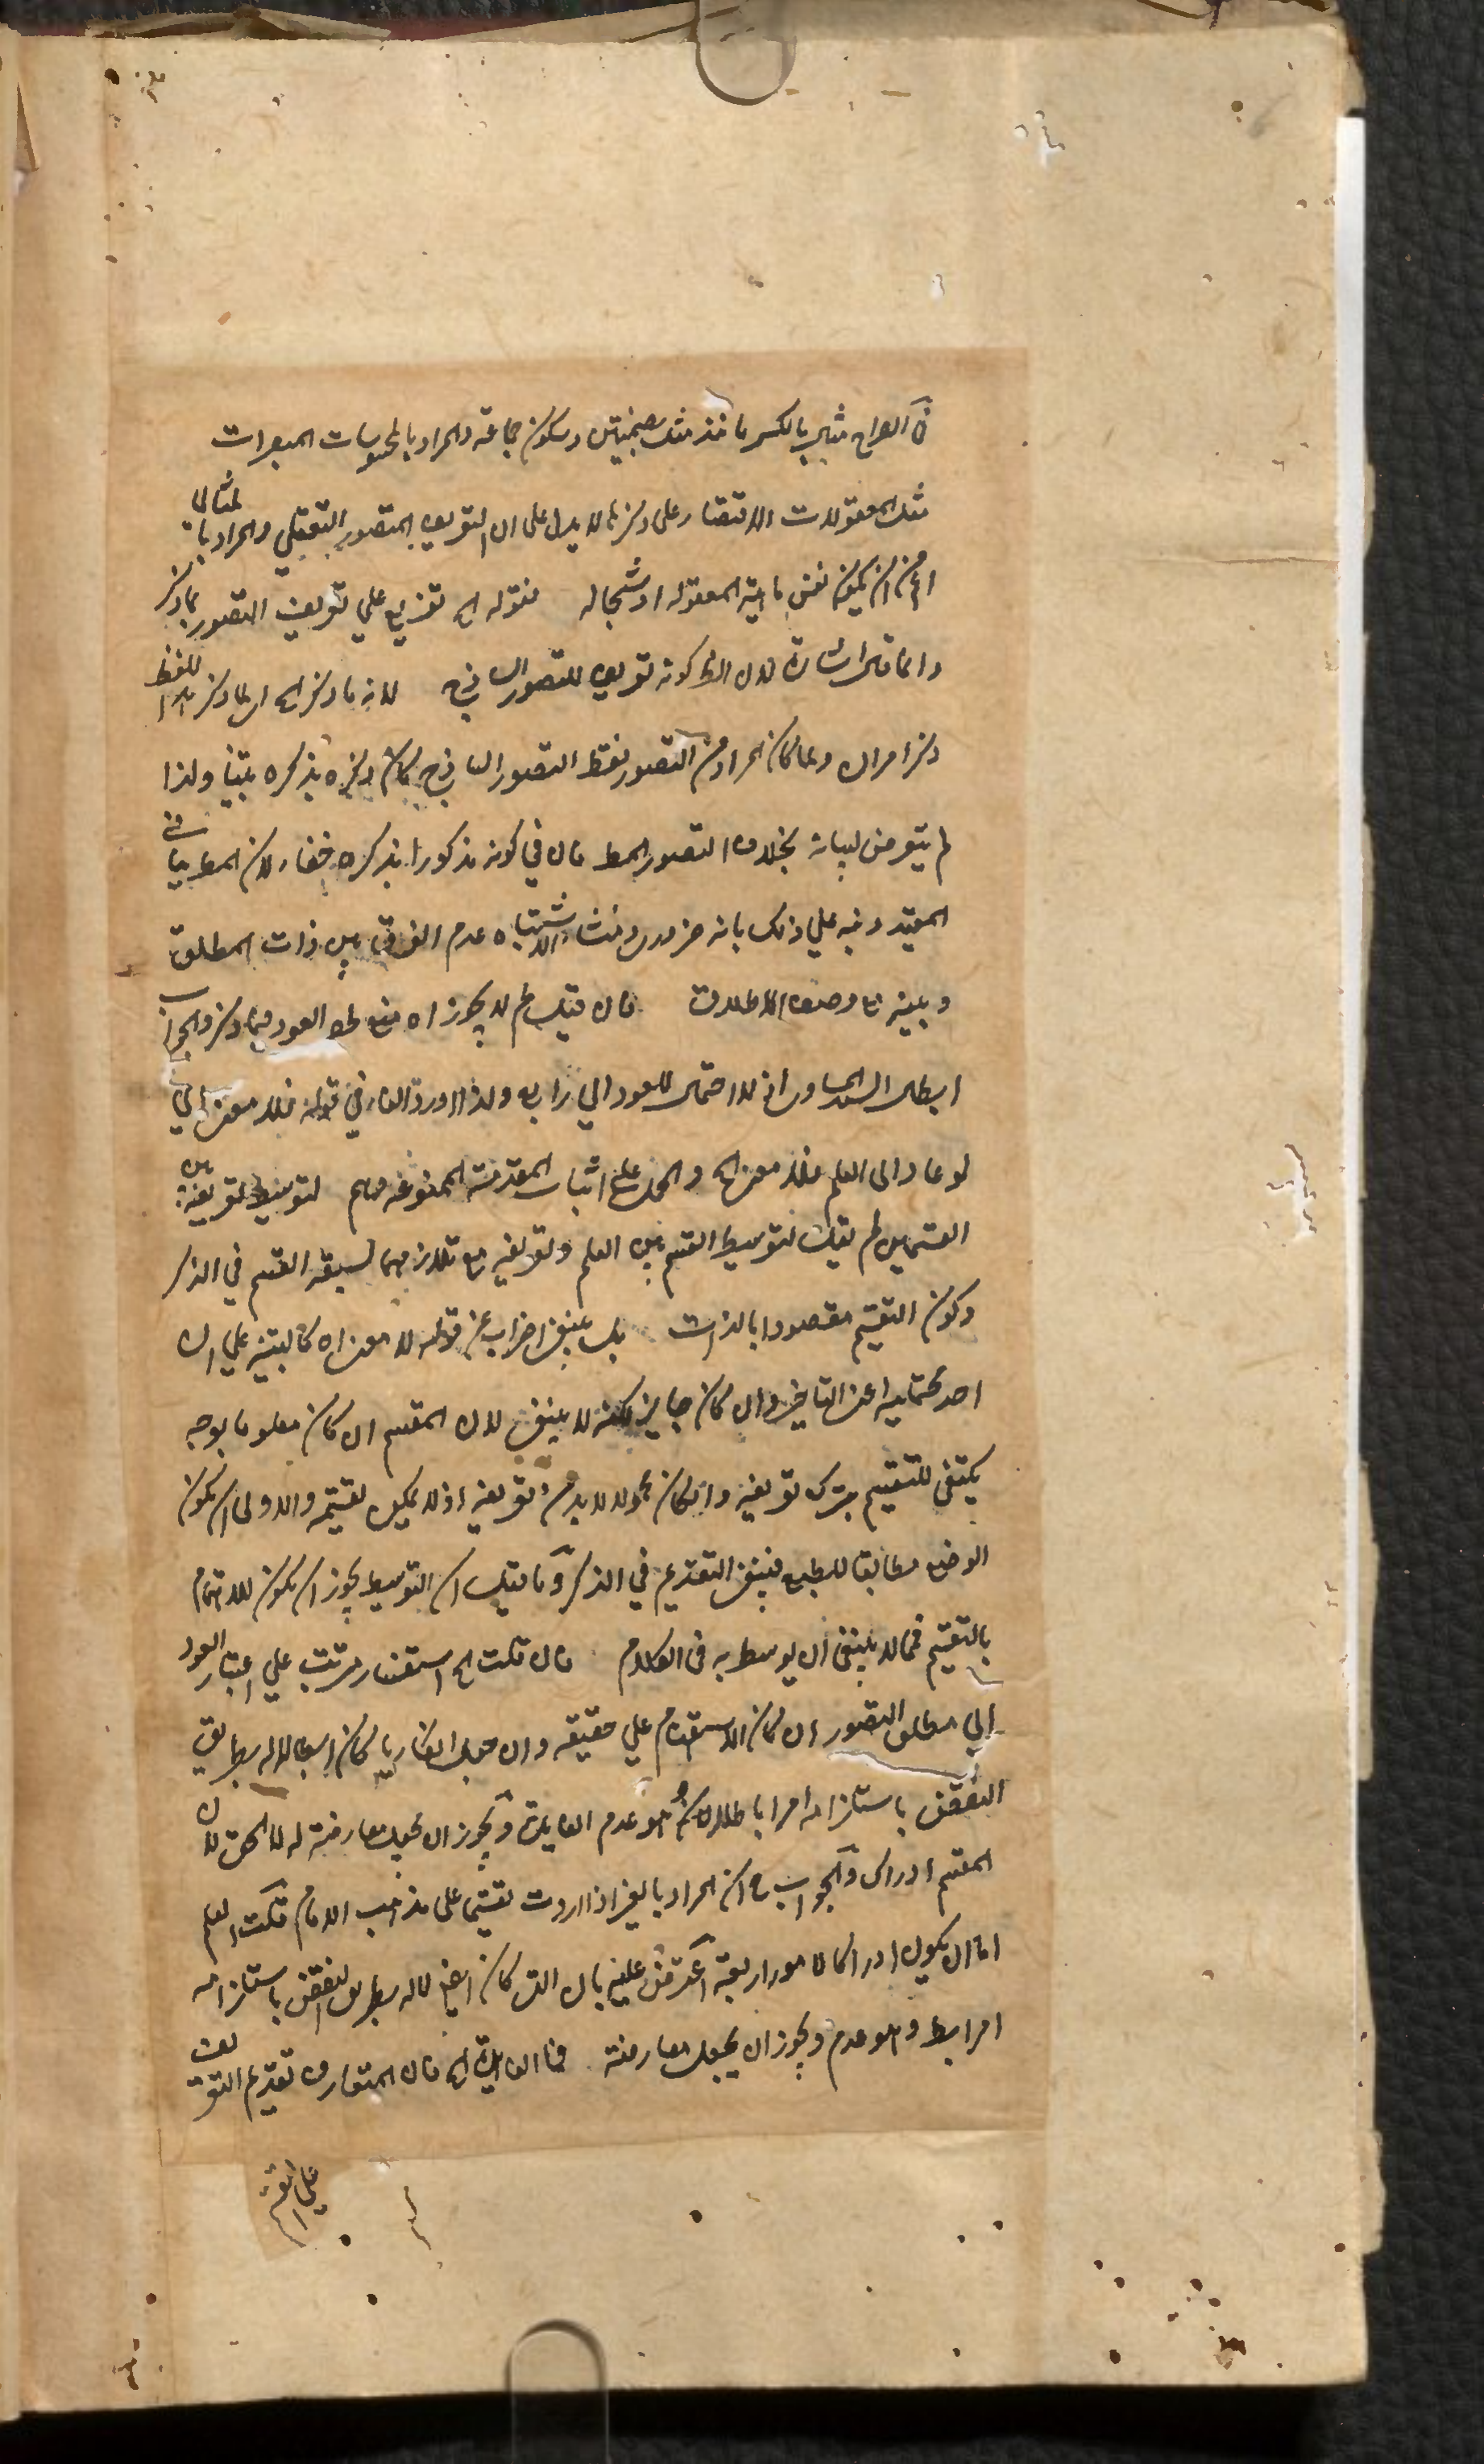 في الصراح مثل بالكسر مانند مثل بضمتين وسكون جماعة والمراد بالمحسوسات المبصرات
مثل المعقولات الاقتصار على ذكرها لا يدل على ان التعريف للتصور التعقلي والمراد بالمثال
اعم من ان يكون نفس ماهية المعقولة او شبحا له فقوله الخ تفريع على تعريف التصور بما ذكر
وانما قال اشارة لان الظ كونه تعريف للتصور الساذج لانه ما ذكر الخ اي لما ذكر هذا اللفظ
ذكر امران ولما كان المراد من التصور فقط التصور الساذج كان ذكره بذكره بينا ولذا
لم يتعرض لبيانه بخلاف التصور المط فان في كونه مذكورا بذكره خفاء لان المط ينافي
المقيد ونبه على ذلك بانه جزء ومنشاء الاشتباه عدم الفرق بين ذات المطلق
وبينه مع وصف الاطلاق فان قيل لم لا يجوز اه منع لحصر العود فيما ذكر والجواب
ابطال السند المساوي اذ لا احتمال للعود الى رابع ولذا اورد الفاء في قوله فلا معنى اي
لو عاد الى العلم فلا معنى الخ والحمل على اثبات المقدمة الممنوعة وهم لتوسيط تعريفه بين
القسمين لم يقل لتوسيط القسم بين العلم وتعريفه مع تلازمهما لسبق القسم في الذكر
وكون التقسيم مقصودا بالذات بل ينبغي اضراب عن قوله لا معنى اه كالتنبيه على ان
احد محتمليه اعني التاخير وان كان جايز لكنه لا ينبغي لان المقسم ان كان معلوما بوجه
يكتفي للتقسيم يترك تعريفه وان كان مجهولا لا بد من تعريفه اذ لا يمكن تقسيمه والاولى ان يكون
الوضع مطابقا للطبع فينبغي التقديم في الذكر وما قيل ان التوسيط يجوز ان يكون للاهتمام
بالتقسيم فمما لا ينبغي ان يوسط به في الكلام فان قلت الخ استفسار مرتب على اعتبار العود
الى مطلق التصور ان كان الاستفهام على حقيقته وان جعل انكاريا كان ابطالا له بطريق
النقض باستلزامه امرا باطلا وهو عدم الفائدة ويجوز ان يجعل معارضة له لا الحق لان
المقسم ادراك والجواب ح ان المراد بالغير اذا اردت تقسيما على مذهب الامام قلت العلم
اما ان يكون ادراكا لامور اربعة اعترض عليه بان الت كان ايضا له بطريق النقض باستلزامه
امرا بط وهو عدم ويجوز ان يجعل معارضة فما الفائدة الخ فان المتعارف تقديم التعريف
على التقسيم